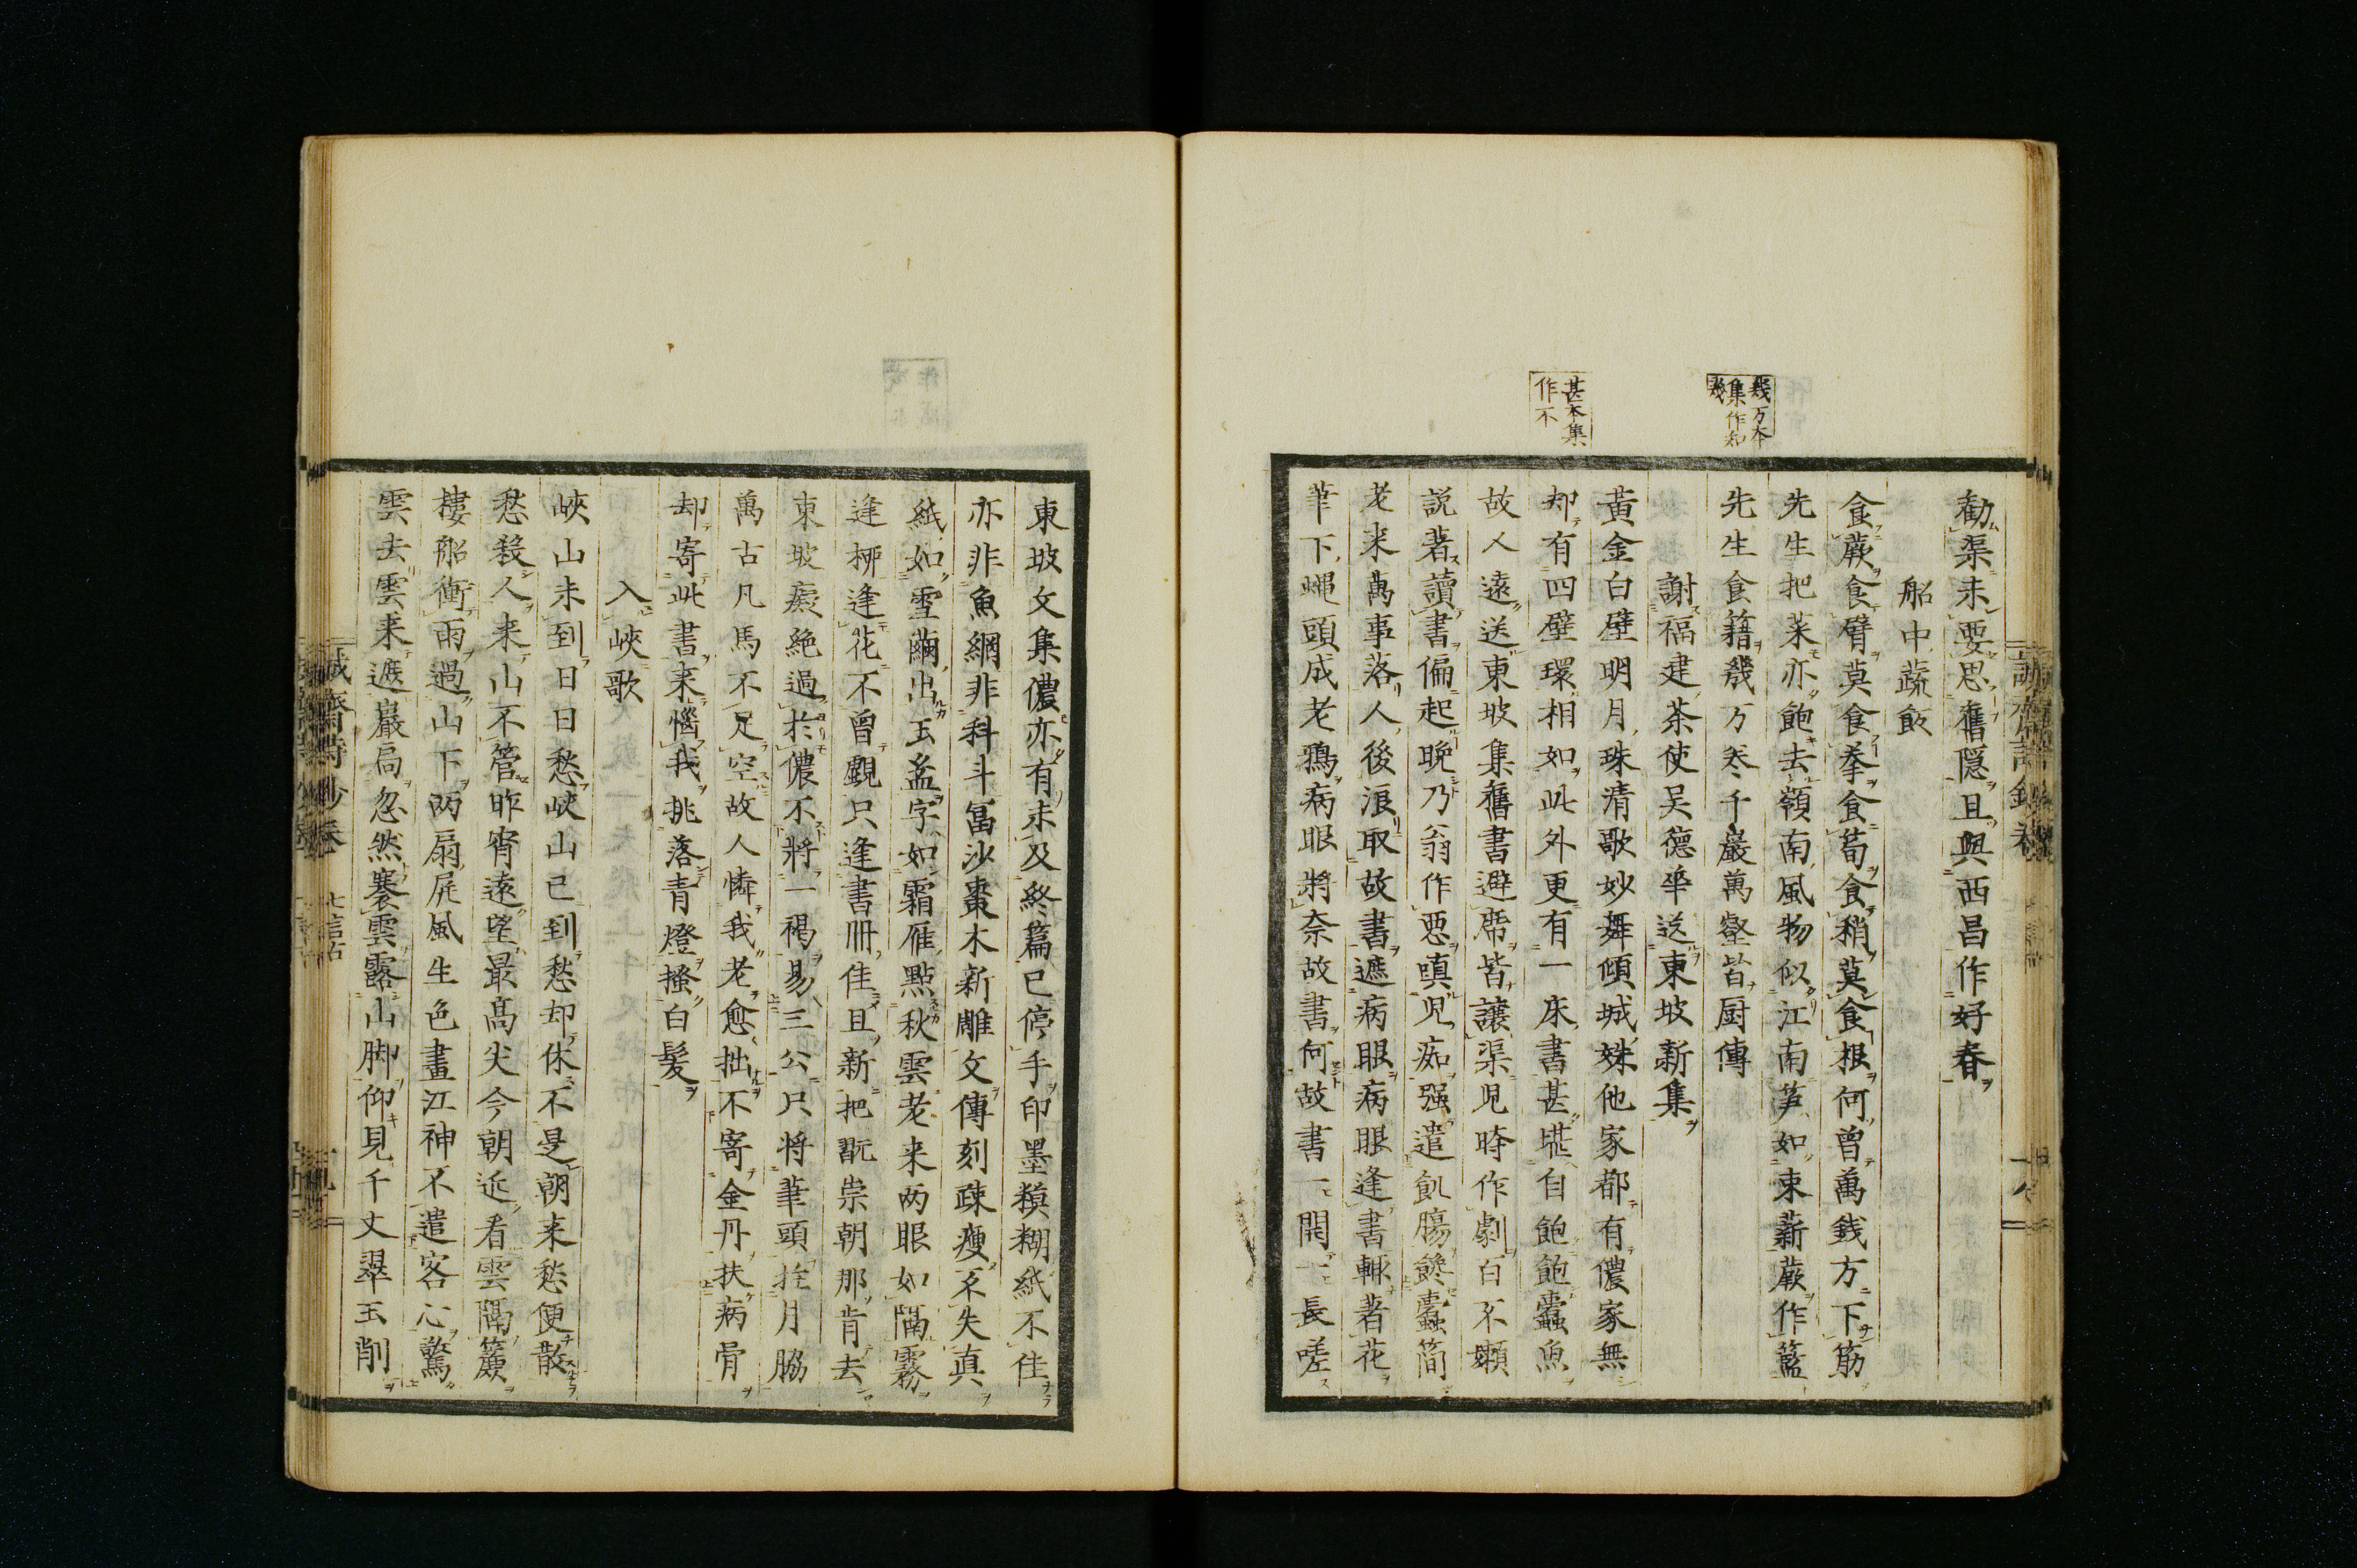 幾万本
集作知
幾
甚本集
作不
勸渠未要思舊隱且與西昌作好春
船中蔬飯
食蕨食臂莫食拳食筍食稍莫食根何曾萬銭方下筯
先生把菜亦飽去嶺南風物似江南笋如束薪蕨作籃
先生食籍幾万巻千巖萬壑皆厨傳
謝福建茶使吴德華送東坡新集
黄金白壁明月珠清歌妙舞傾城姝他家都有儂家無
却有四壁環相如此外更有一床書甚堪自飽飽蠹魚
故人遠送東坡集舊書避席皆讓渠児時作劇百不嬾
説著讀書偏起晩乃翁作惡嗔児痴强遣飢膓饞蠹簡
老来萬事落人後浪取故書遮病眼病眼逢書輒著花
筆下蝿頭成老鴉病眼將奈故書何故書一開一長嗟
東坡文集儂亦有未及終篇已停手印墨糢糊紙不佳
亦非魚網非科斗冨沙棗木新雕文傳刻疎瘦不失真
紙如雪繭出玉盆字如霜雁點秋雲老来兩眼如隔霧
逢柳逢花不曽覰只逢書冊佳且新把翫崇朝那肯去
東坡癡絶過於儂不將一褐易三公只将筆頭拄月脇
萬古凡馬不足空故人憐我老愈拙不寄金丹扶病骨
却寄此書来惱我挑落青燈搔白髪
入峽歌
峽山未到日日愁峽山已到愁却休不是朝来愁便散
愁殺人来山不管昨宵遠望最高尖今朝近看雲隔簾
樓船衝雨過山下兩扇屏風生色畫江神不遣客心驚
雲去雲来遮巖扃忽然褰雲露山脚仰見千丈翠玉削